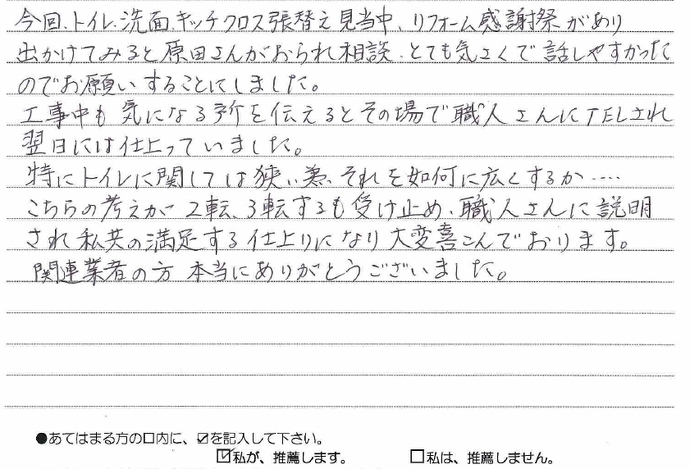 今回、トイレ、洗面、キッチクロス張替え見当中、リフォーム感謝祭があり
出かけてみると原田さんがおられ相談、とても気さくで話しやすかった
のでお願いすることにしました。
工事中も気になる所を伝えるとその場で職人さんにTELされ
翌日には仕上っていました。
特にトイレに関しては狭い為、それを如何に広くするか‥‥
こちらの考えが2転、3転するも受け止め、職人さんに説明
され私共の満足する仕上りになり大変喜こんでおります。
関連業者の方 本当にありがとうございました。
●あてはまる方の口内に、☑を記入して下さい。
☑私が、推薦します。 □私は、推薦しません。